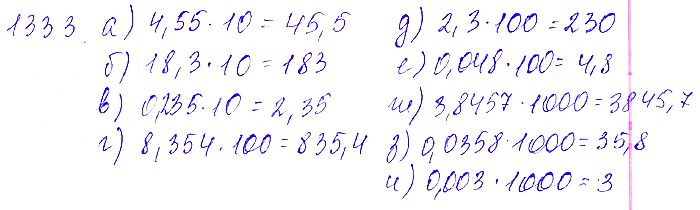 1333. а) 4,55 · 10 = 45,5
б) 18,3 · 10 = 183
в) 0,235 · 10 = 2,35
г) 8,354 · 100 = 835,4
д) 2,3 · 100 = 230
е) 0,048 · 100 = 4,8
ж) 3,8457 · 1000 = 3845,7
з) 0,0358 · 1000 = 35,8
и) 0,003 · 1000 = 3